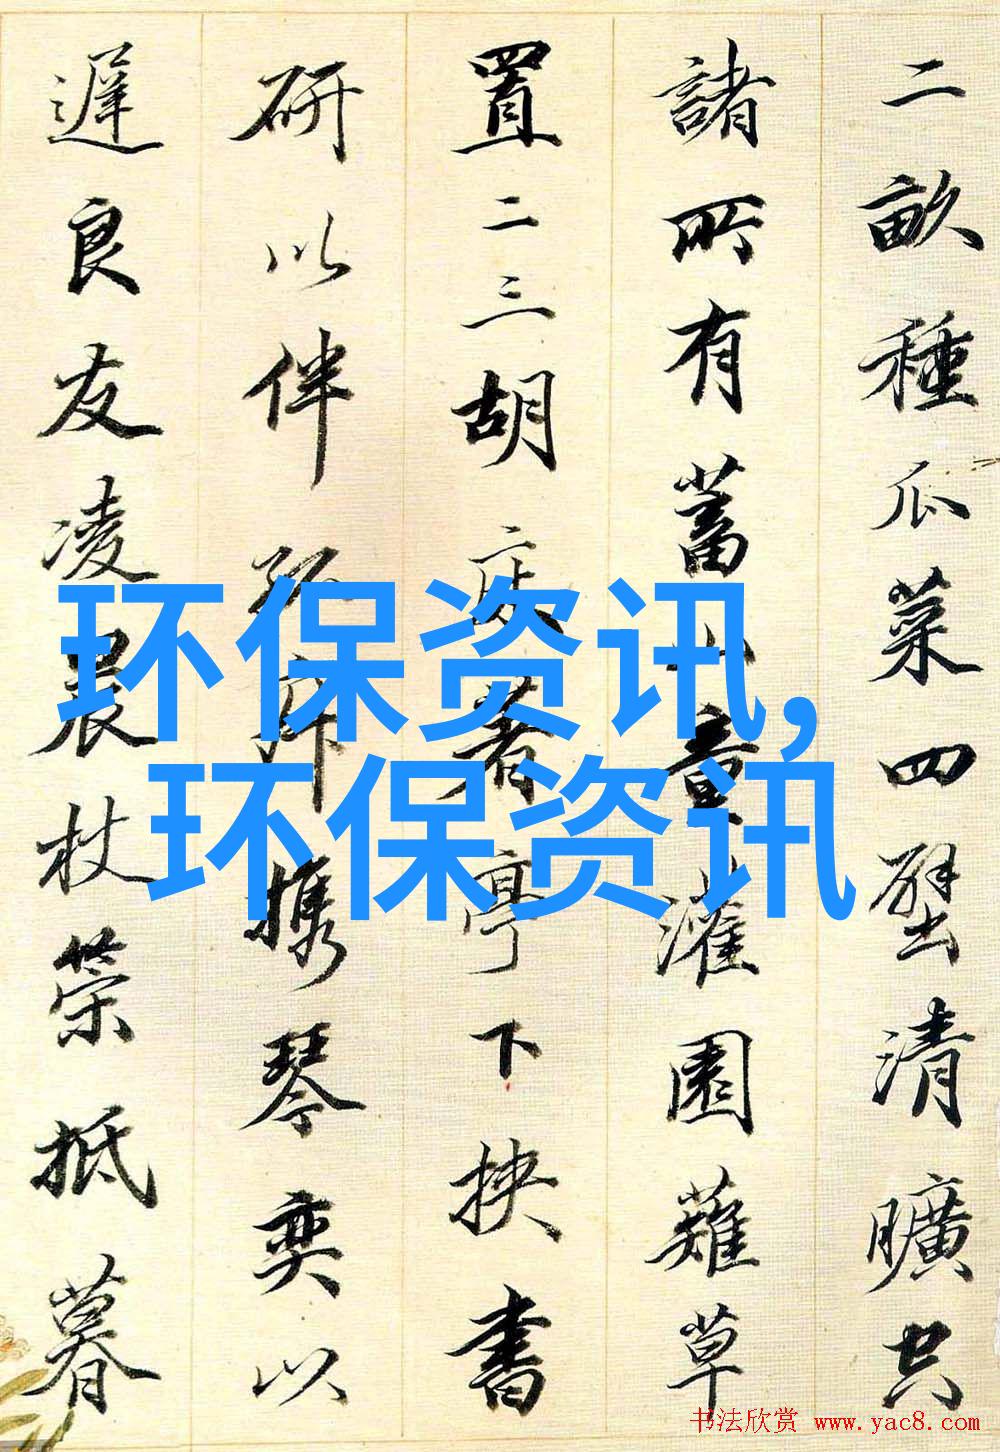 二畝種瓜菜四壁清曠空
諸所有蓄山童灌園薙草
置二三胡床著亭下挾書
研以伴孤寂攜琴奕以
遲良友凌晨杖策抵暮
环保资讯,
环保资讯
书法欣赏 www.yac8.com